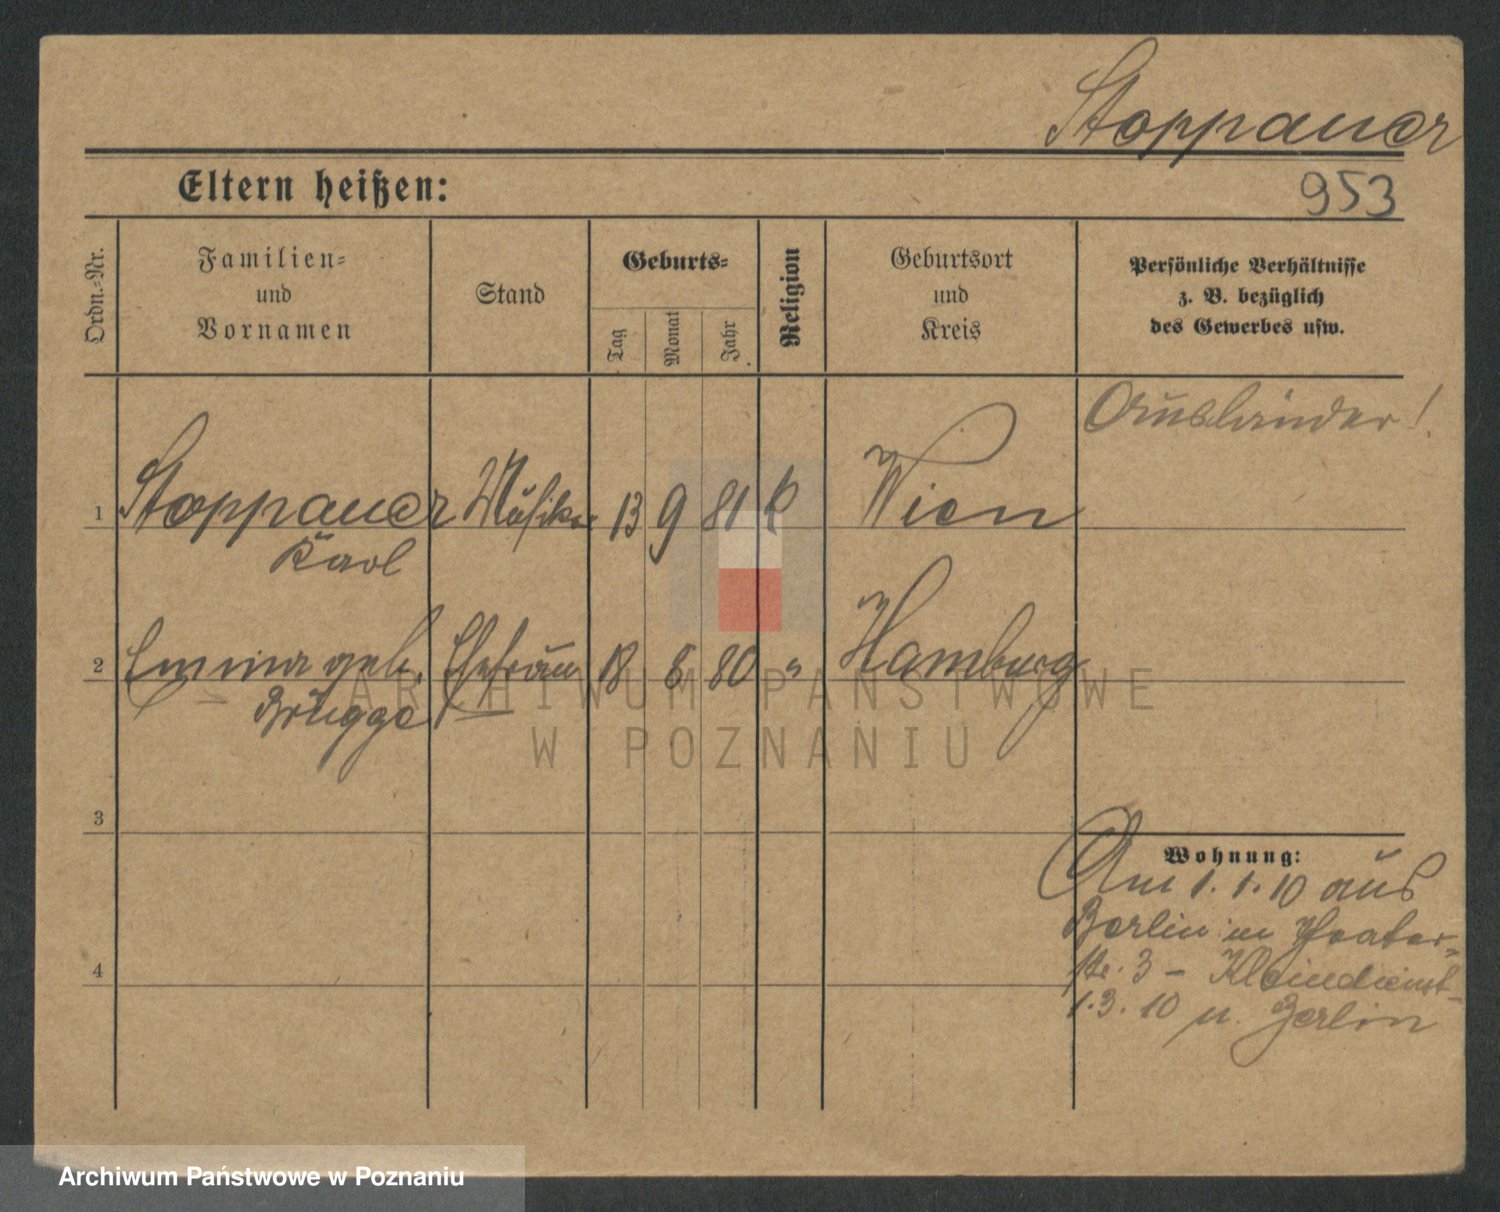 Stoppauer
Eltern heißen:
953
Ordn.-Nr.
Familien-
und
Vornamen
Stand
Geburts-
Tag
Monat
Jahr
Religion
Geburtsort
und
Kreis
Persönliche Verhältnisse
z. B. bezüglich
des Gewerbes usw.
Ausländer!
1 Stoppauer Musiker 13 9 81 k Wien
Karl
2 Emma geb. Ehefrau 18 8 80 " Hamburg
Brügge
3
4
Wohnung:
Am 1. 1. 10 aus
Berlin in Theater-
str. 3 – Kleindienst–
1.3. 10 n. Berlin
ARCHIWUM PAŃSTWOWE
W POZNANIU
Archiwum Państwowe w Poznaniu